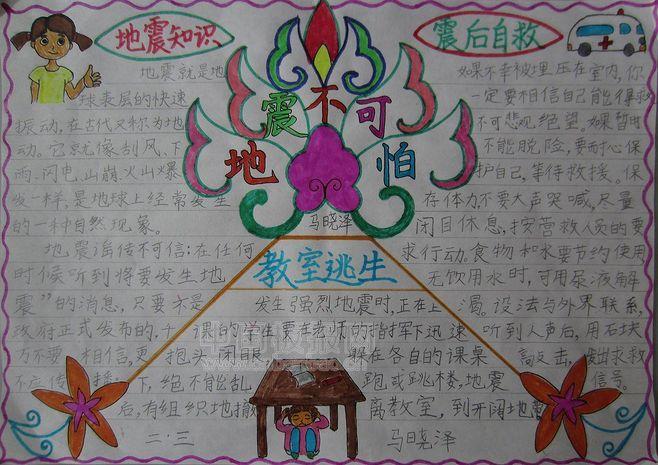 地震知识
地震就是地
球表层的快速
振动,在古代又称为地
动。它就像刮风、下
雨、闪电、山崩、火山爆
发一样,是地球上经常发生
的一种自然现象。
地震谣传不可信:在任何
时候听到将要发生地
震”的消息,只要不是
政府正式发布的,千
万不要相信,更
不应传播
地震不可怕
马晓泽
教室逃生
发生强烈地震时,正在上
课的学生要在老师的指挥下迅速
抱头、闭眼、躲在各自的课桌
下,绝不能乱跑或跳楼,地震
后,有组织地撤离教室,到开阔地带
二·三
马晓泽
震后自救
如果不幸被埋压在室内,你
一定要相信自己能得救
不可悲观绝望。如果暂时
不能脱险,要耐心保
护自己,等待救援。保
存体力不要大声哭喊,尽量
闭目休息,按营救人员的要
求行动。食物和水要节约使用
无饮用水时,可用尿液解
渴。设法与外界联系,
听到人声后,用石块
敲击,发出求救
信号。